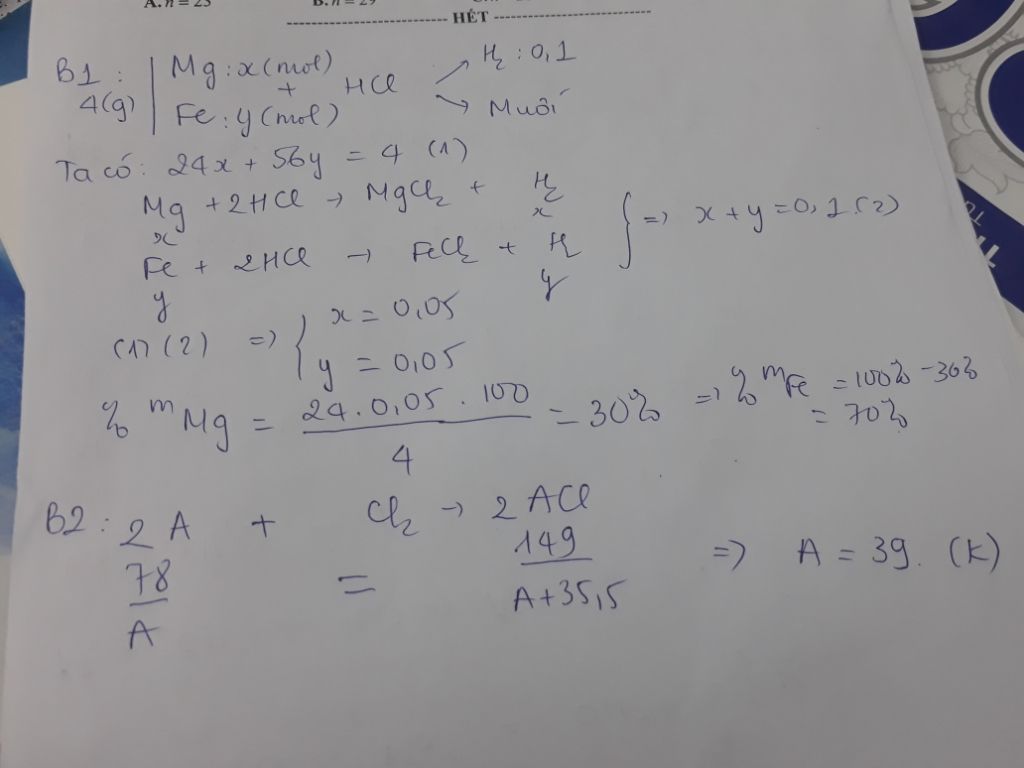 A. n = 25 B. n = 29
HẾT
B1: Mg: x (mol) H₂: 0,1
+ HCl
4(g) Fe: y (mol) Muối
Ta có: 24x + 56y = 4 (1)
Mg + 2HCl → MgCl₂ + H₂
x x
} => x + y = 0,1 (2)
Fe + 2HCl → FeCl₂ + H₂
y y
(1) (2) => { x = 0,05
y = 0,05
% mMg = 24.0,05.100 / 4 = 30% => % mFe = 100% - 30%
= 70%
B2: 2A + Cl₂ → 2ACl
78/A = 149/A+35,5 => A = 39. (K)